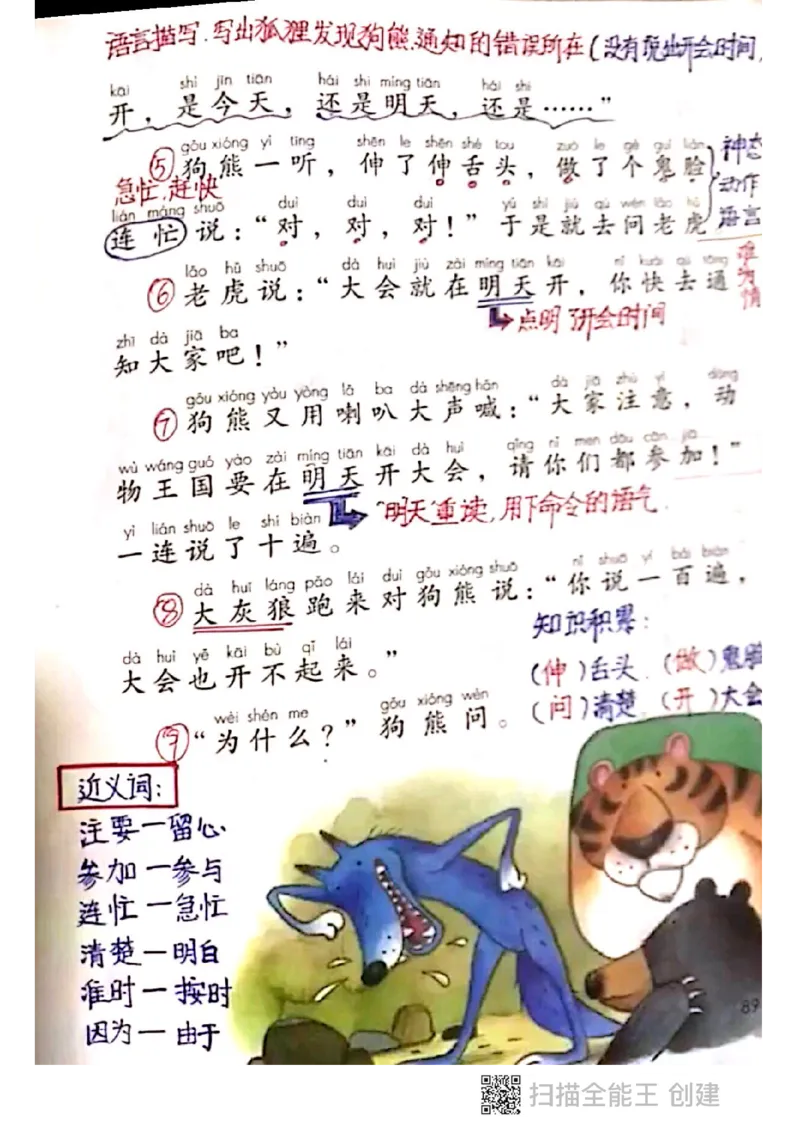 语言描写.写出狐狸发现狗熊通知的错误所在(没有说出开会时间,
kāi shì jīn tiān hái shì míng tiān hái shì
开，是今天，还是明天，还是……”
gǒu xióng yì tīng shēn le shēn shé tou zuò le gè guǐ liǎn
⑤狗熊一听，伸了伸舌头，做了个鬼脸
神态
动作
语言
急忙,赶快
lián máng shuō duì duì duì yú shì jiù qù wèn lǎo hǔ
连忙说：“对，对，对！”于是就去问老虎
难为情
lǎo hǔ shuō dà huì jiù zài míng tiān kāi nǐ kuài qù tōng
⑥老虎说：“大会就在明天开，你快去通
点明了开会时间
zhī dà jiā ba
知大家吧！”
gǒu xióng yòu yòng lǎ ba dà shēng hǎn dà jiā zhù yì dòng
⑦狗熊又用喇叭大声喊：“大家注意，动
wù wáng guó yào zài míng tiān kāi dà huì qǐng nǐ men dōu cān jiā
物王国要在明天开大会，请你们都参加！”
“明天”重读,用下命令的语气.
yì lián shuō le shí biàn
一连说了十遍。
dà huī láng pǎo lái duì gǒu xióng shuō nǐ shuō yì bǎi biàn
⑧大灰狼跑来对狗熊说：“你说一百遍，
知识积累：
dà huì yě kāi bù qǐ lái
大会也开不起来。”
(伸)舌头.(做)鬼脸
(问)清楚.(开)大会
wèi shén me gǒu xióng wèn
⑨“为什么？”狗熊问。
近义词：
注要一留心
参加一参与
连忙一急忙
清楚一明白
准时一按时
因为一由于
89
扫描全能王 创建